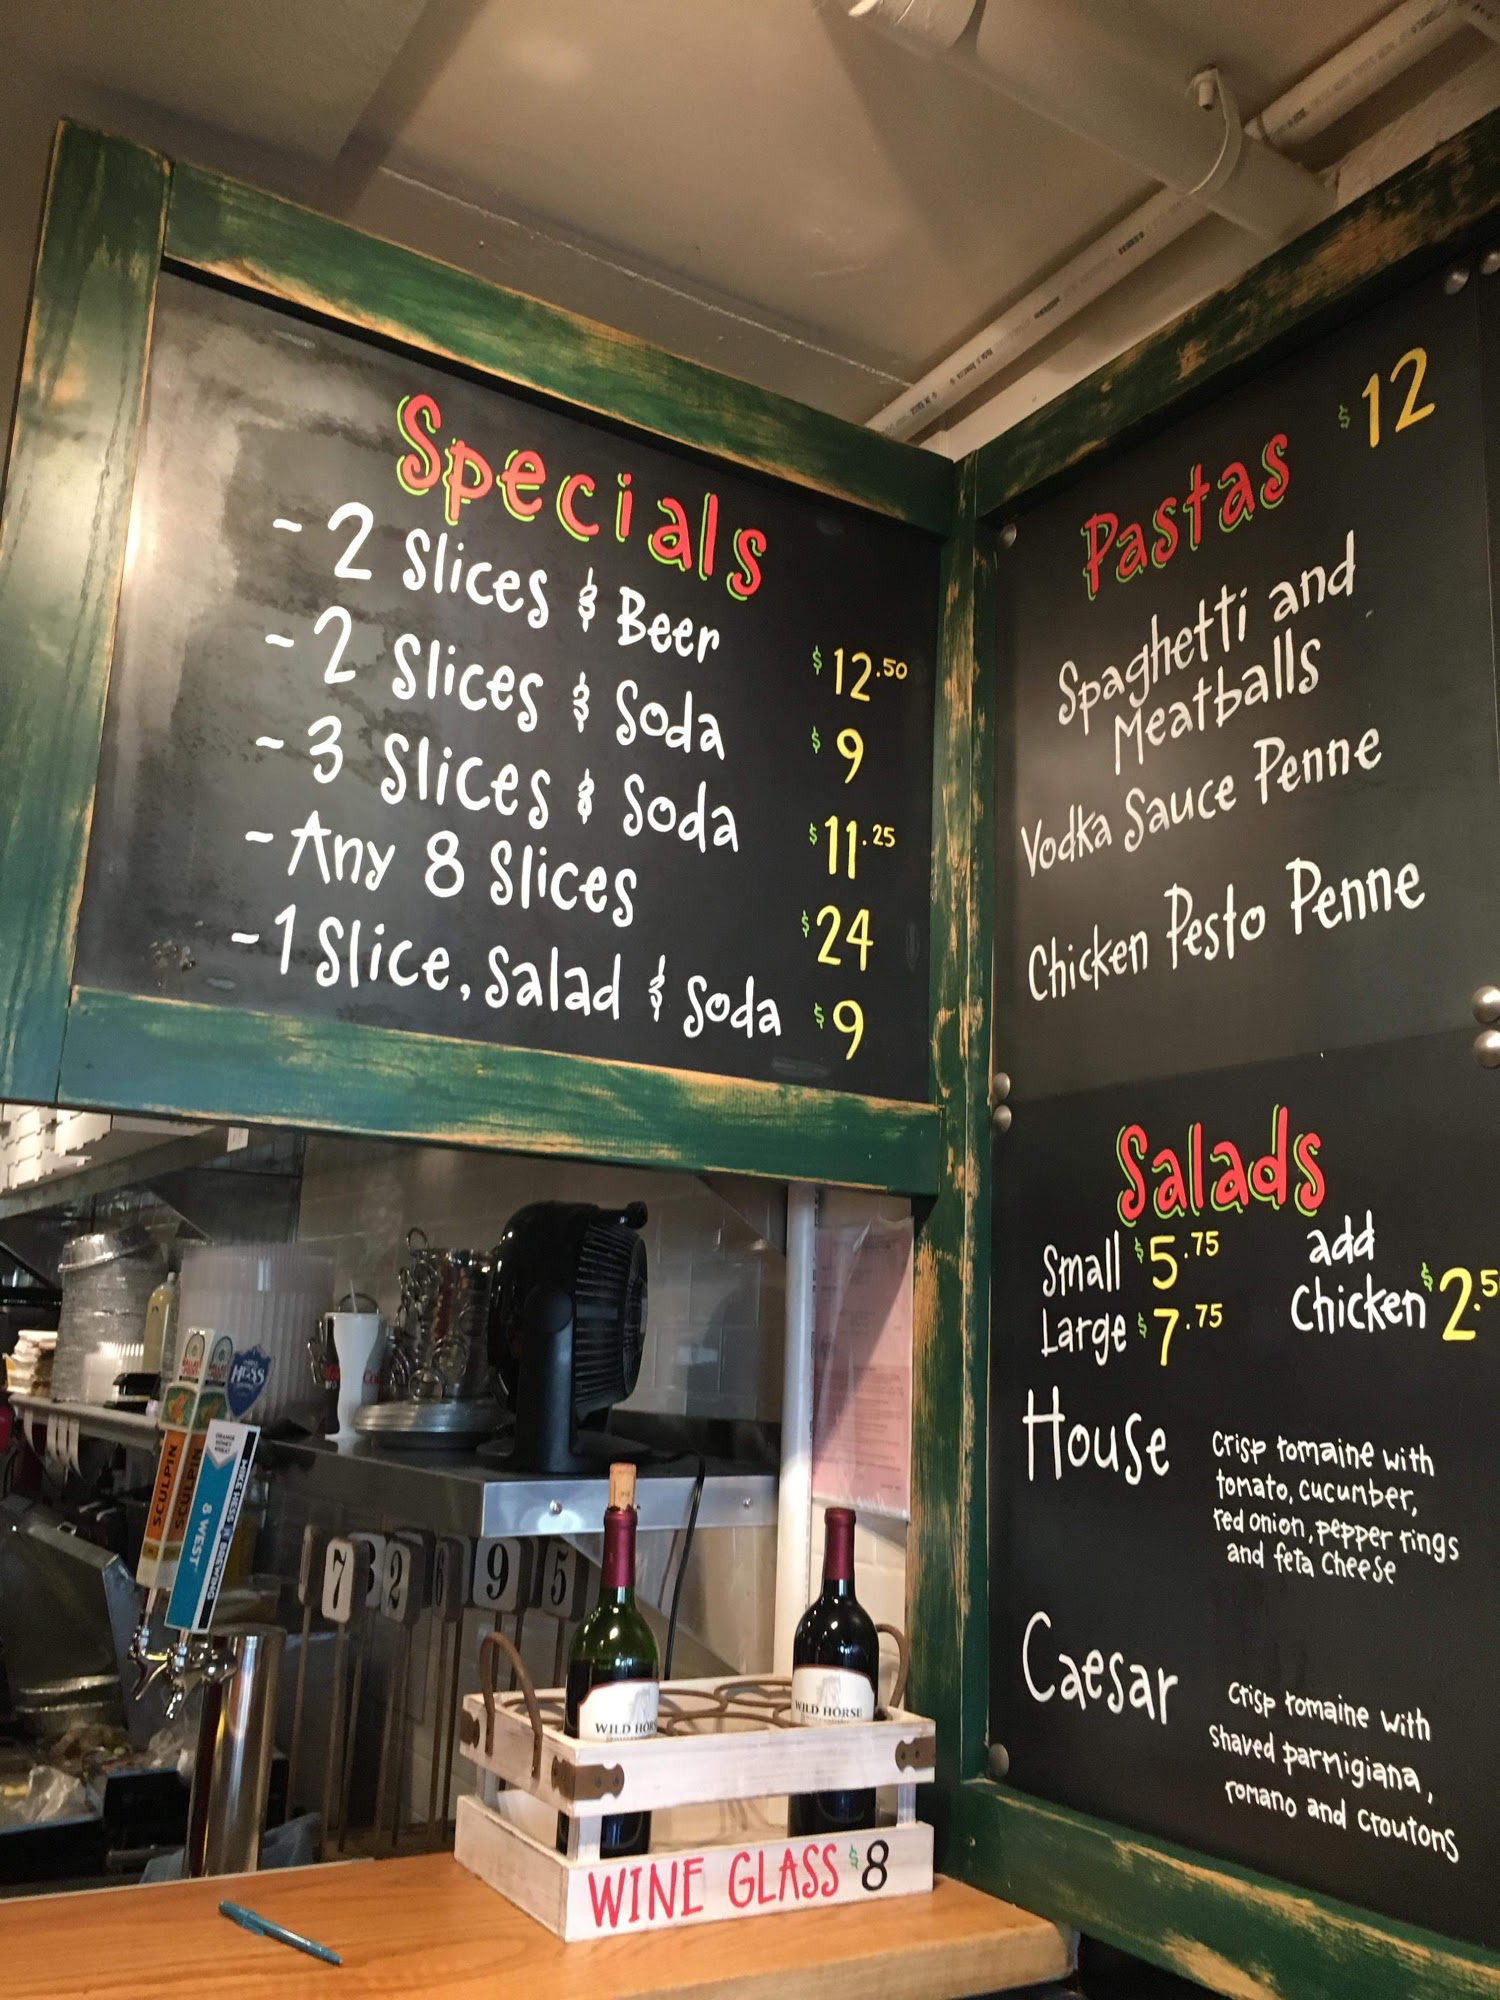 Specials
- 2 Slices & Beer $12.50
- 2 Slices & Soda $9
- 3 Slices & Soda $11.25
- Any 8 Slices $24
- 1 Slice, Salad & Soda $9
Pastas $12
Spaghetti and
Meatballs
Vodka Sauce Penne
Chicken Pesto Penne
Salads
Small $5.75
Large $7.75
add
Chicken $2.5
House
Crisp romaine with
tomato, cucumber,
red onion, pepper rings
and feta cheese
Caesar
Crisp romaine with
shaved parmigiana,
romano and croutons
HESS
SCULPIN
SCULPIN
8 WEST
MIKE HESS BREWING
7
3
2
6
9
5
WILD HORS
WILD HORSE
WINE GLASS $8